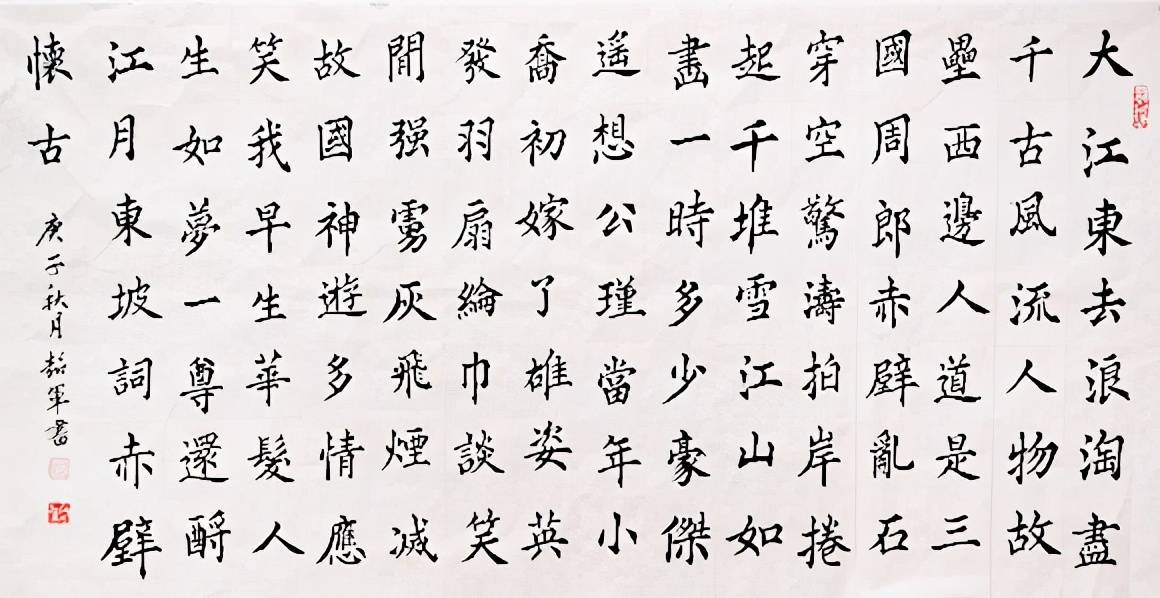 大江東去浪淘盡
千古風流人物故
壘西邊人道是三
國周郎赤壁亂石
穿空驚濤拍岸捲
起千堆雪江山如
畫一時多少豪傑
遙想公瑾當年小
喬初嫁了雄姿英
發羽扇綸巾談笑
間强虜灰飛煙滅
故國神遊多情應
笑我早生華髮人
生如夢一尊還酹
江月東坡詞赤壁
懷古
庚子秋月韶軍書